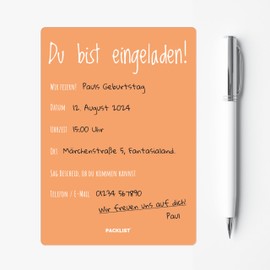 Du bist eingeladen!
Wir feiern: Pauls Geburtstag
Datum: 12. August 2024
Uhrzeit: 15:00 Uhr
Ort: Märchenstraße 5, Fantasialand
Sag Bescheid, ob du kommen kannst:
Telefon / E-Mail: 01234 567890
Wir freuen uns auf dich!
Paul
PACKLIST